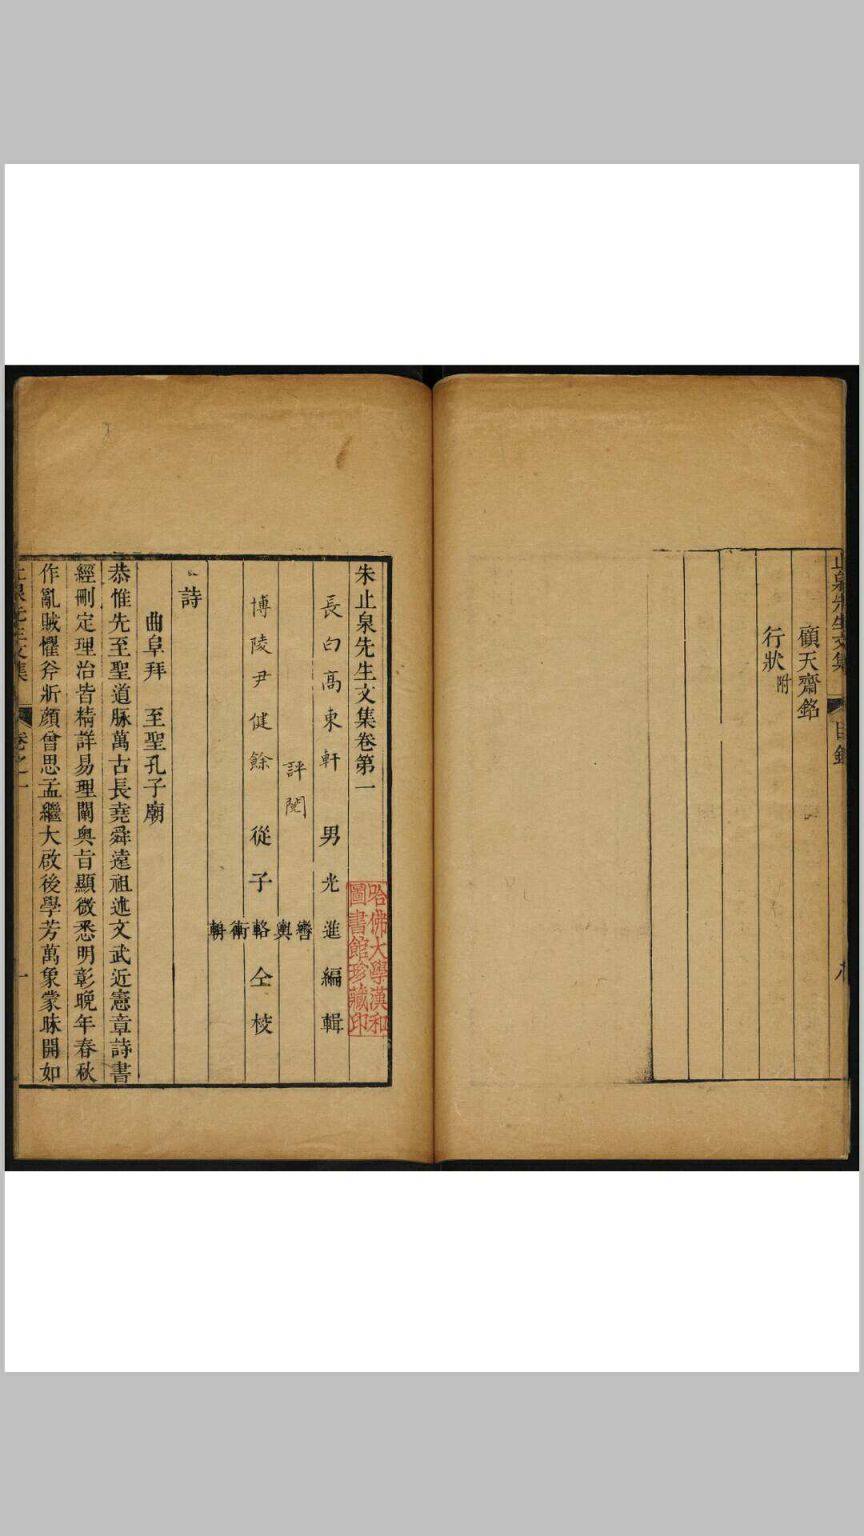 止泉先生文集
目錄
顧天齋銘
行狀附
朱止泉先生文集卷第一
長白高東軒
評閱
博陵尹健餘
男光進編輯
轡
輿
從子輅仝校
衝
輧
哈佛大學漢和
圖書館珍藏印
詩
曲阜拜 至聖孔子廟
恭惟先至聖道脉萬古長堯舜遠祖述文武近憲章詩書
經刪定理治皆精詳易理闡奥旨顯微悉明彰晚年春秋
作亂賊懼斧斨顔曾思孟繼大啟後學芳萬象蒙昧開如
止泉先生文集
卷之一
一